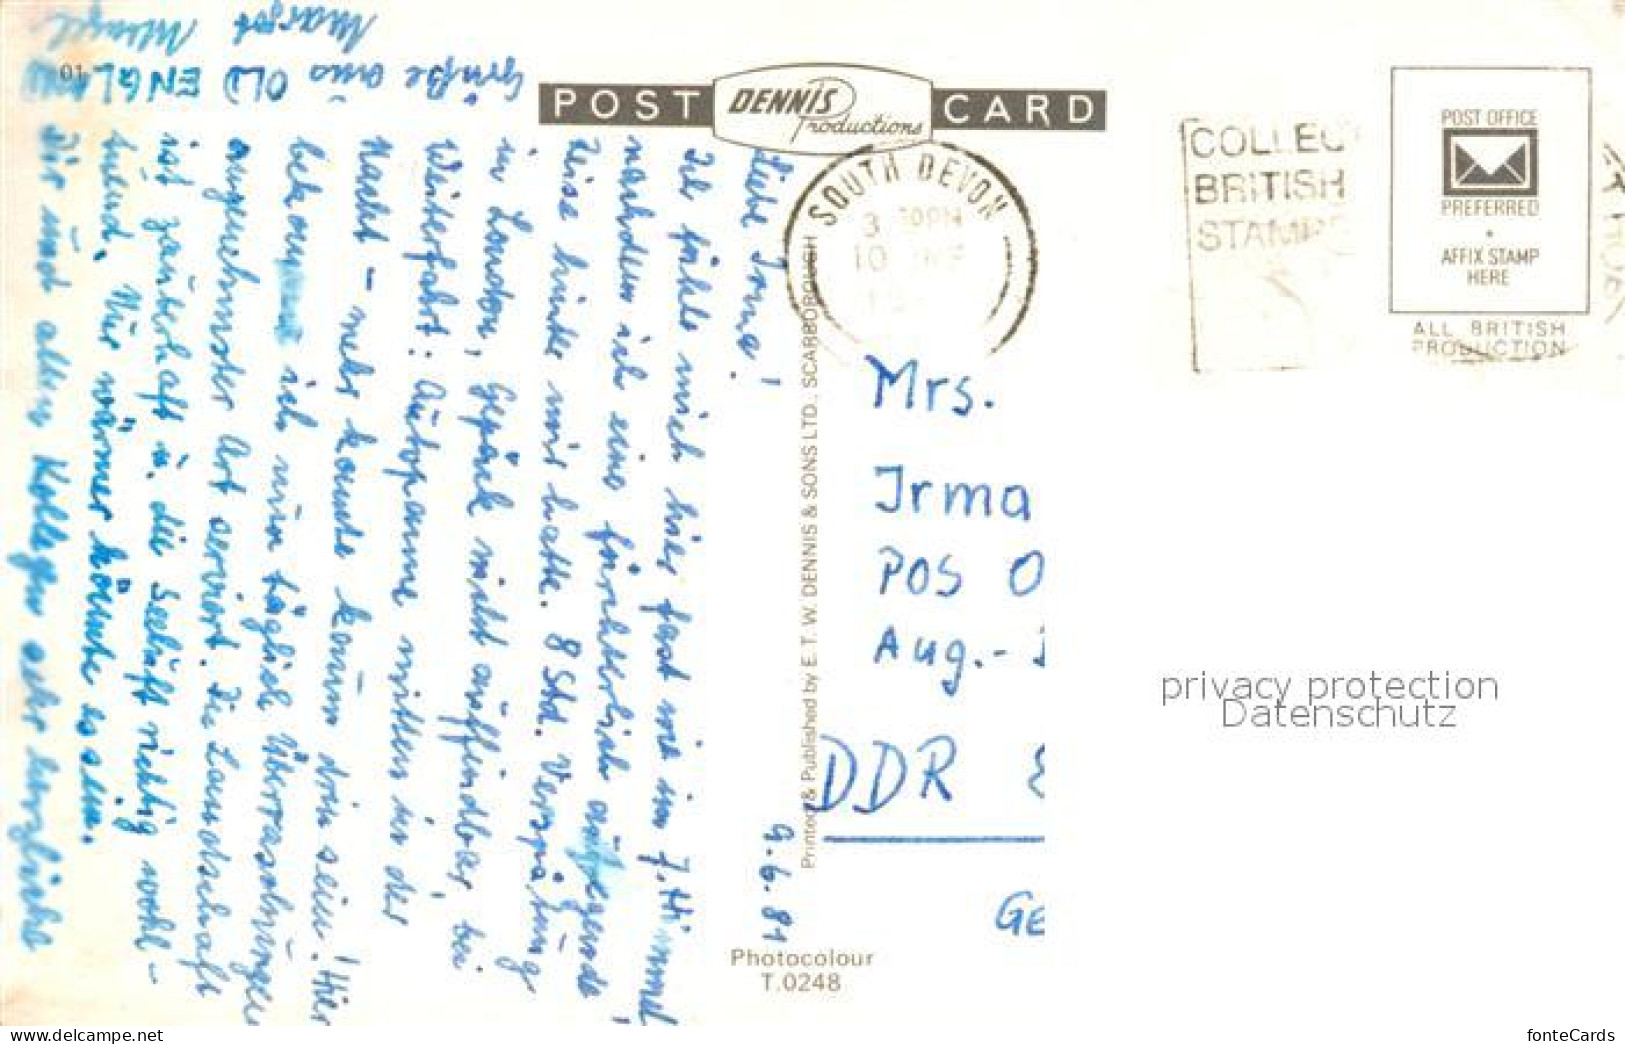 POST DENNIS Productions CARD
SOUTH DEVON
3 30PM
10
COLLEC
BRITISH
STAMPS
POST OFFICE
PREFERRED
AFFIX STAMP
HERE
ALL BRITISH
PRODUCTION
9.6.81
Liebe Irma!
Ich fühle mich hier fast wie im 7. Himmel
nachdem ich eine fürchterlich aufregende
Reise hinter mir hatte. 8 Std. Verspätung
in London, Gepäck nicht auffindbar, bei
Weiterfahrt: Autopanne mitten in der
Nacht - mehr konnte kaum drin sein! Hier
bekomme ich nun täglich Überraschungen
angenehmster Art serviert. Die Landschaft
ist zauberhaft u. die Seeluft richtig wohl-
tuend. Nur wärmer könnte es sein.
Dir und allen Kollegen sehr herzliche
Grüße aus OLD ENGLAND
Margot
01
Printed & Published by E. T. W. DENNIS & SONS LTD., SCARBOROUGH
Mrs.
Irma
POS O
Aug.-
DDR
GE
Photocolour
T.0248
privacy protection
Datenschutz
www.delcampe.net
fonteCards